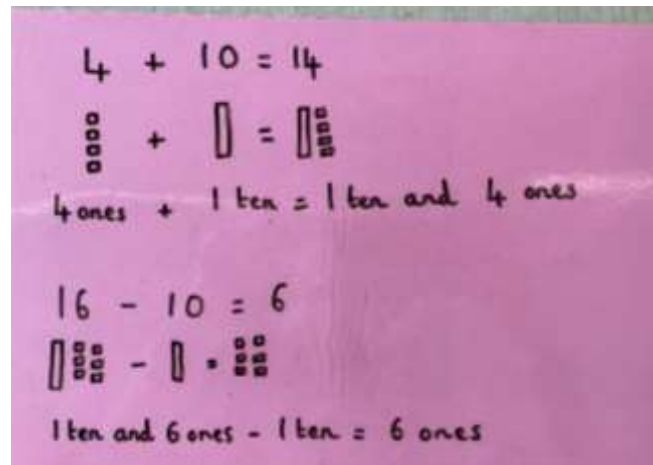 4 + 10 = 14
+ =
4 ones + 1 ten = 1 ten and 4 ones
16 - 10 = 6
- =
1 ten and 6 ones - 1 ten = 6 ones